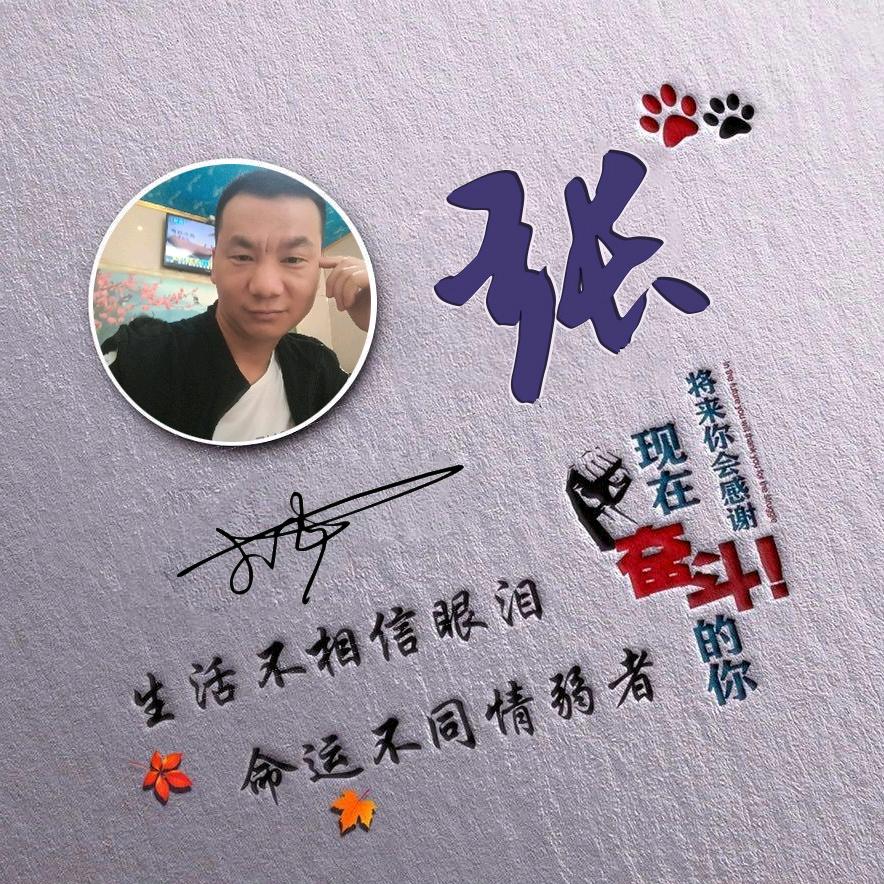 张
将来你会感谢
现在
奋斗!
的你
生活不相信眼泪
命运不同情弱者